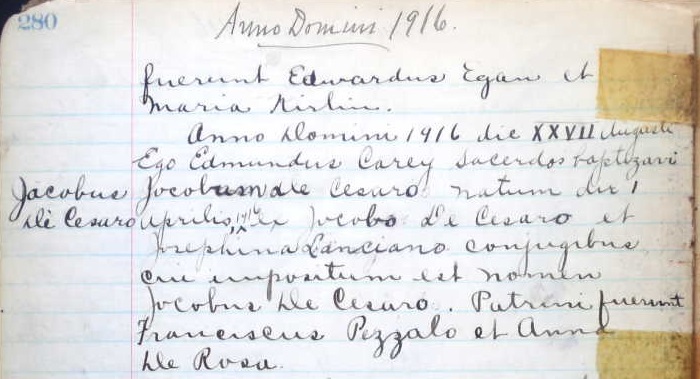 280
Anno Domini 1916.
fuerunt Edwardus Egan et
Maria Kirlin.
Anno Domini 1916 die XXVII Augusti
Ego Edmundus Carey Sacerdos baptizavi
Jacobus Jocobum de Cesaro natum die 1
De Cesaro Aprilis, 1916 ex Jocobo De Cesaro et
Josephina Lanciano conjugibus
cui impositum est nomen
Jocobus De Cesaro. Patrini fuerunt
Franciscus Pezzalo et Anna
De Rosa.